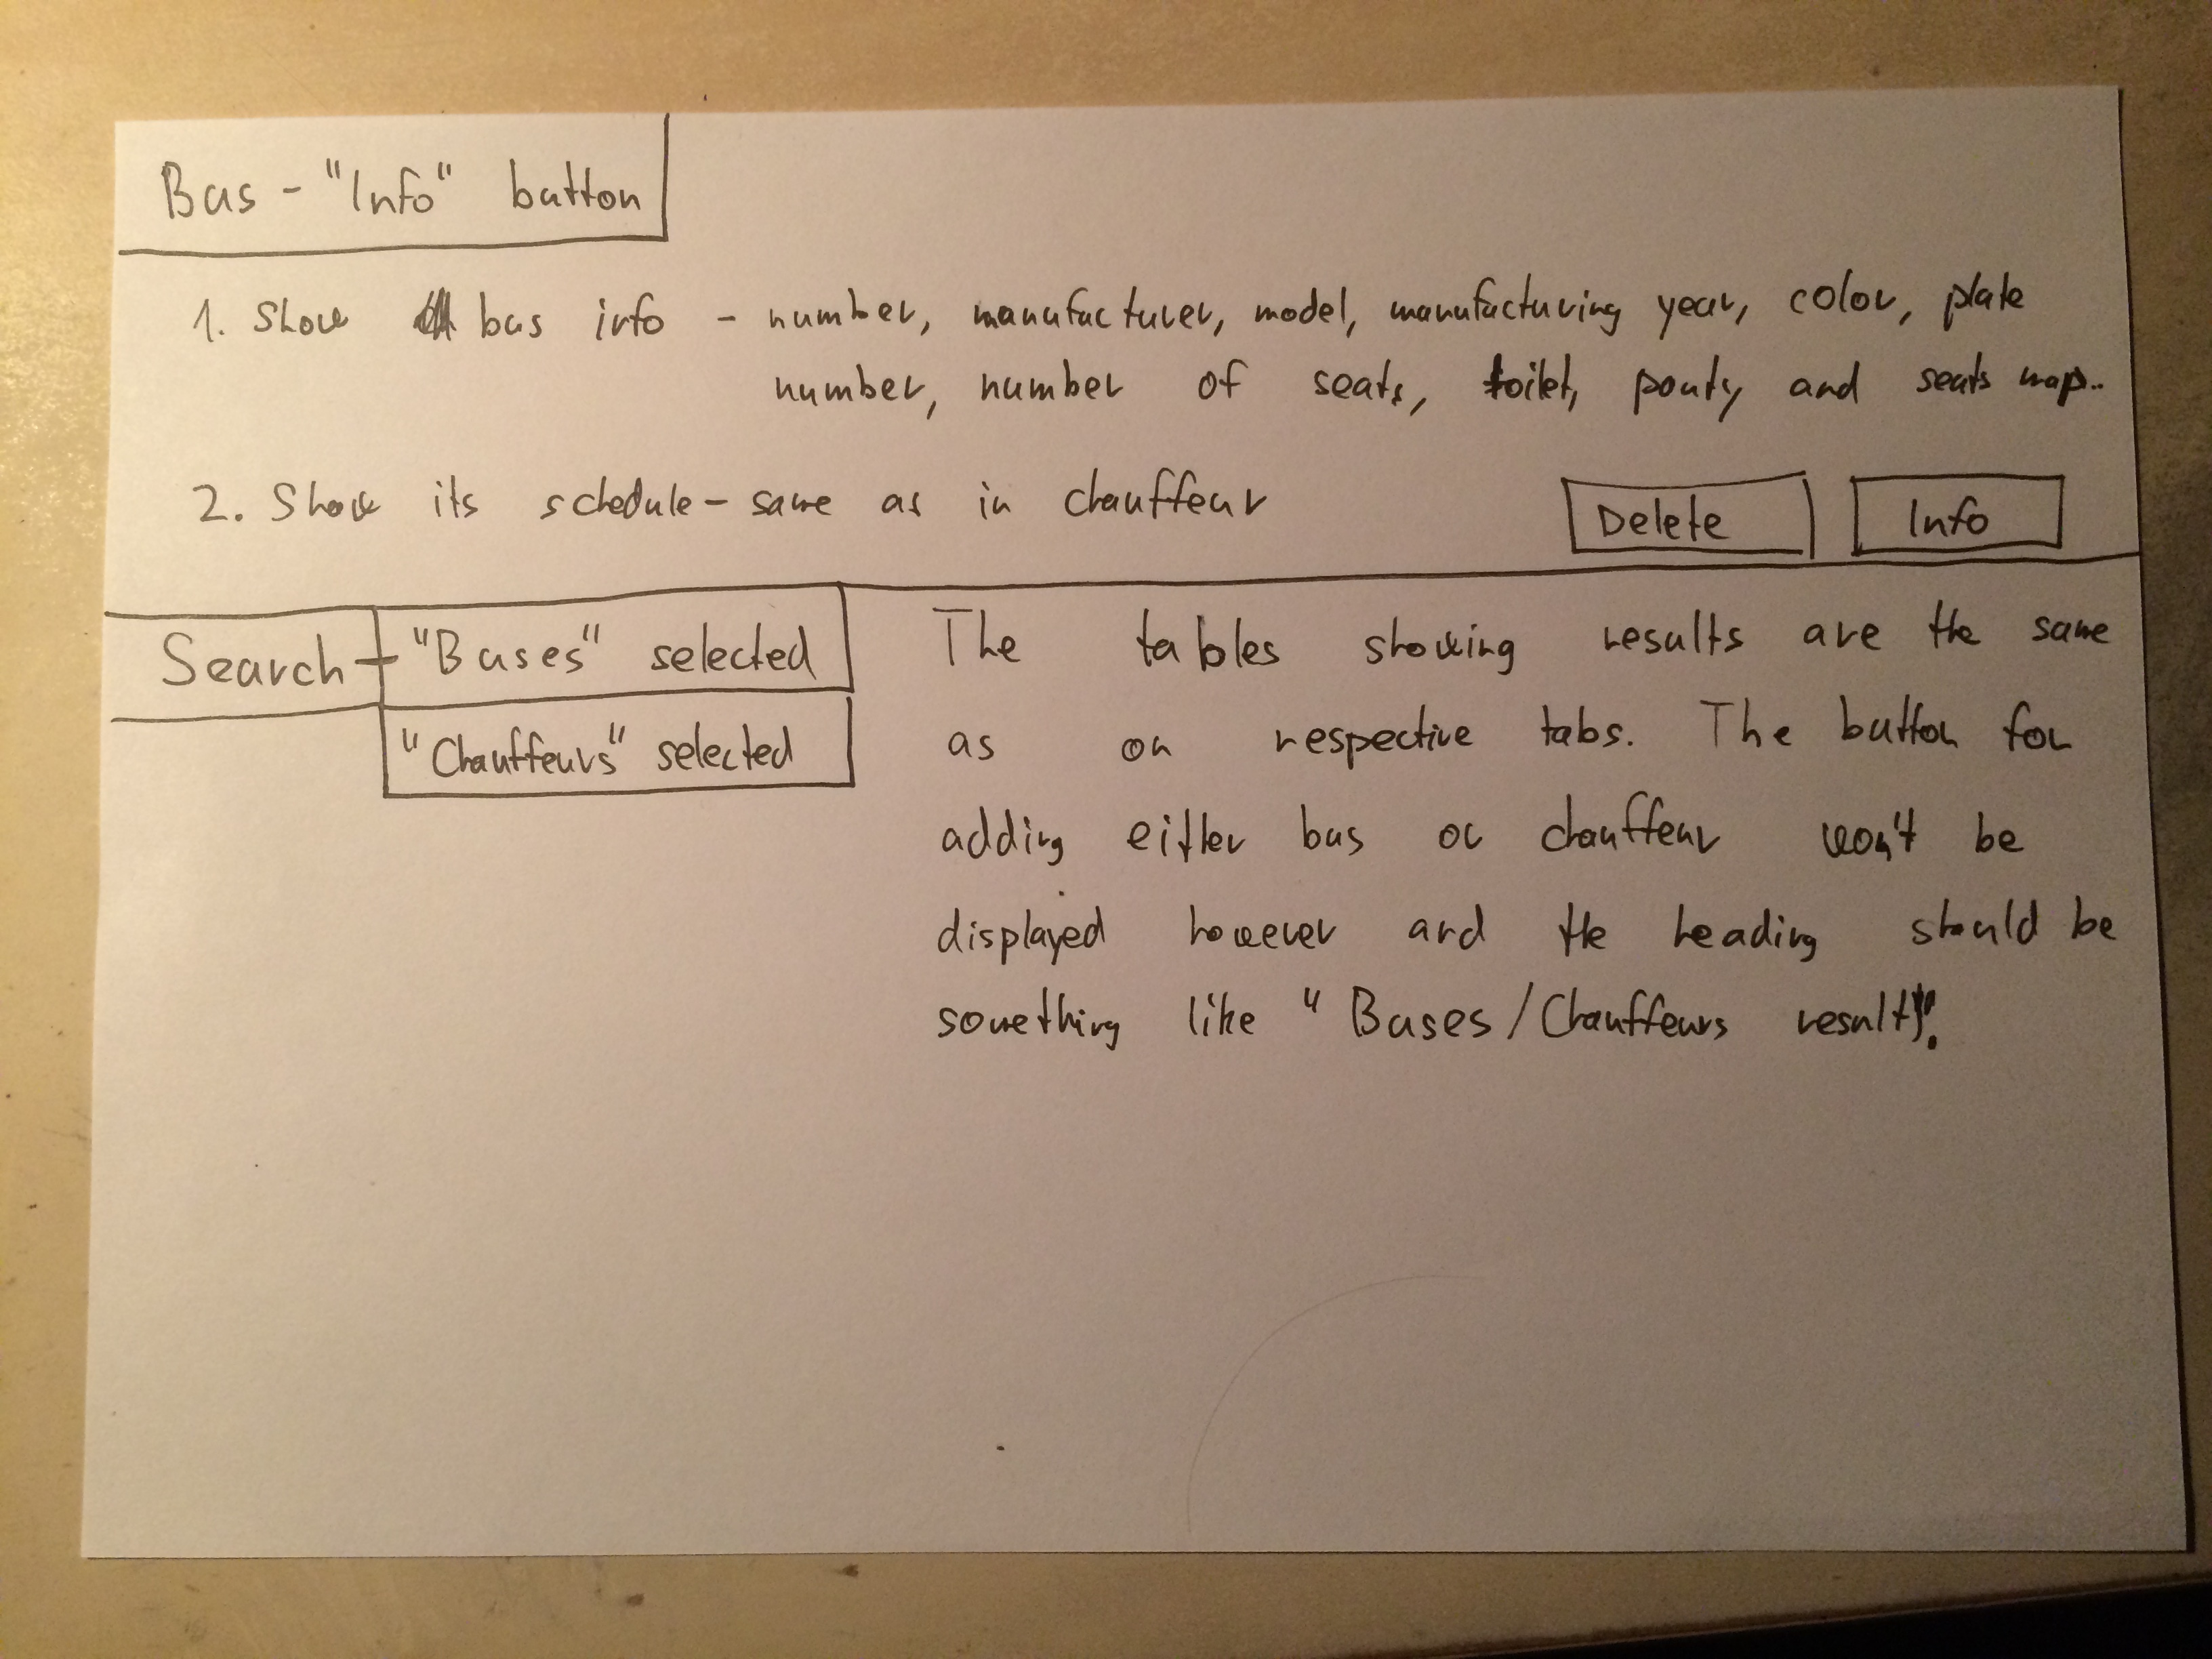 Bus - "Info" button
1. Show bus info - number, manufacturer, model, manufacturing year, color, plate
number, number of seats, toilet, and seats map.
2. Show its schedule - same as in chauffeur
Delete
Info
Search - "Buses" selected
"Chauffeurs" selected
The tables showing results are the same
as on respective tabs. The button for
adding either bus or chauffeur won't be
displayed however and the heading should be
something like "Buses/Chauffeurs results".